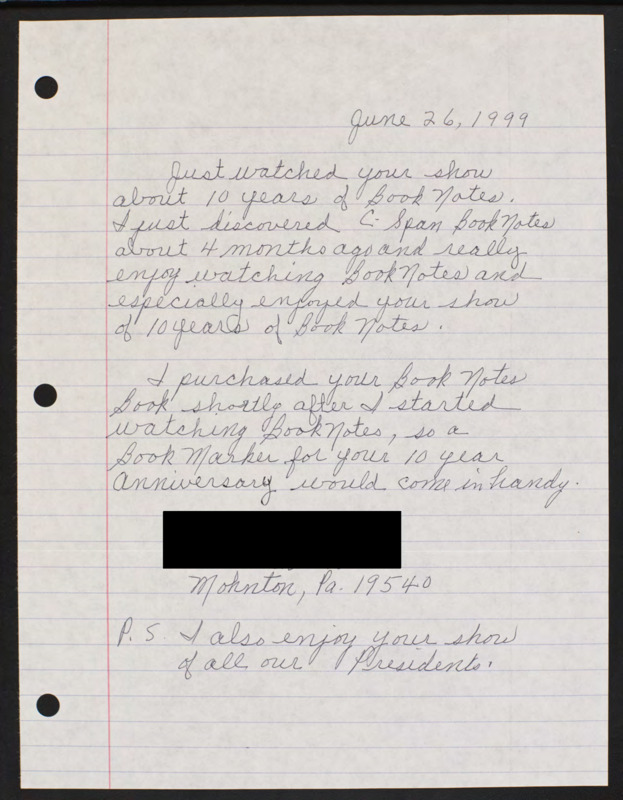 June 26, 1999
Just watched your show
about 10 years of Book Notes.
I just discovered C-Span Book Notes
about 4 months ago and really
enjoy watching Book Notes and
especially enjoyed your show
of 10 years of Book Notes.
I purchased your Book Notes
Book shortly after I started
watching Book Notes, so a
Book Marker for your 10 year
Anniversary would come in handy.
Mohnton, Pa. 19540
P.S. I also enjoy your show
of all our Presidents.